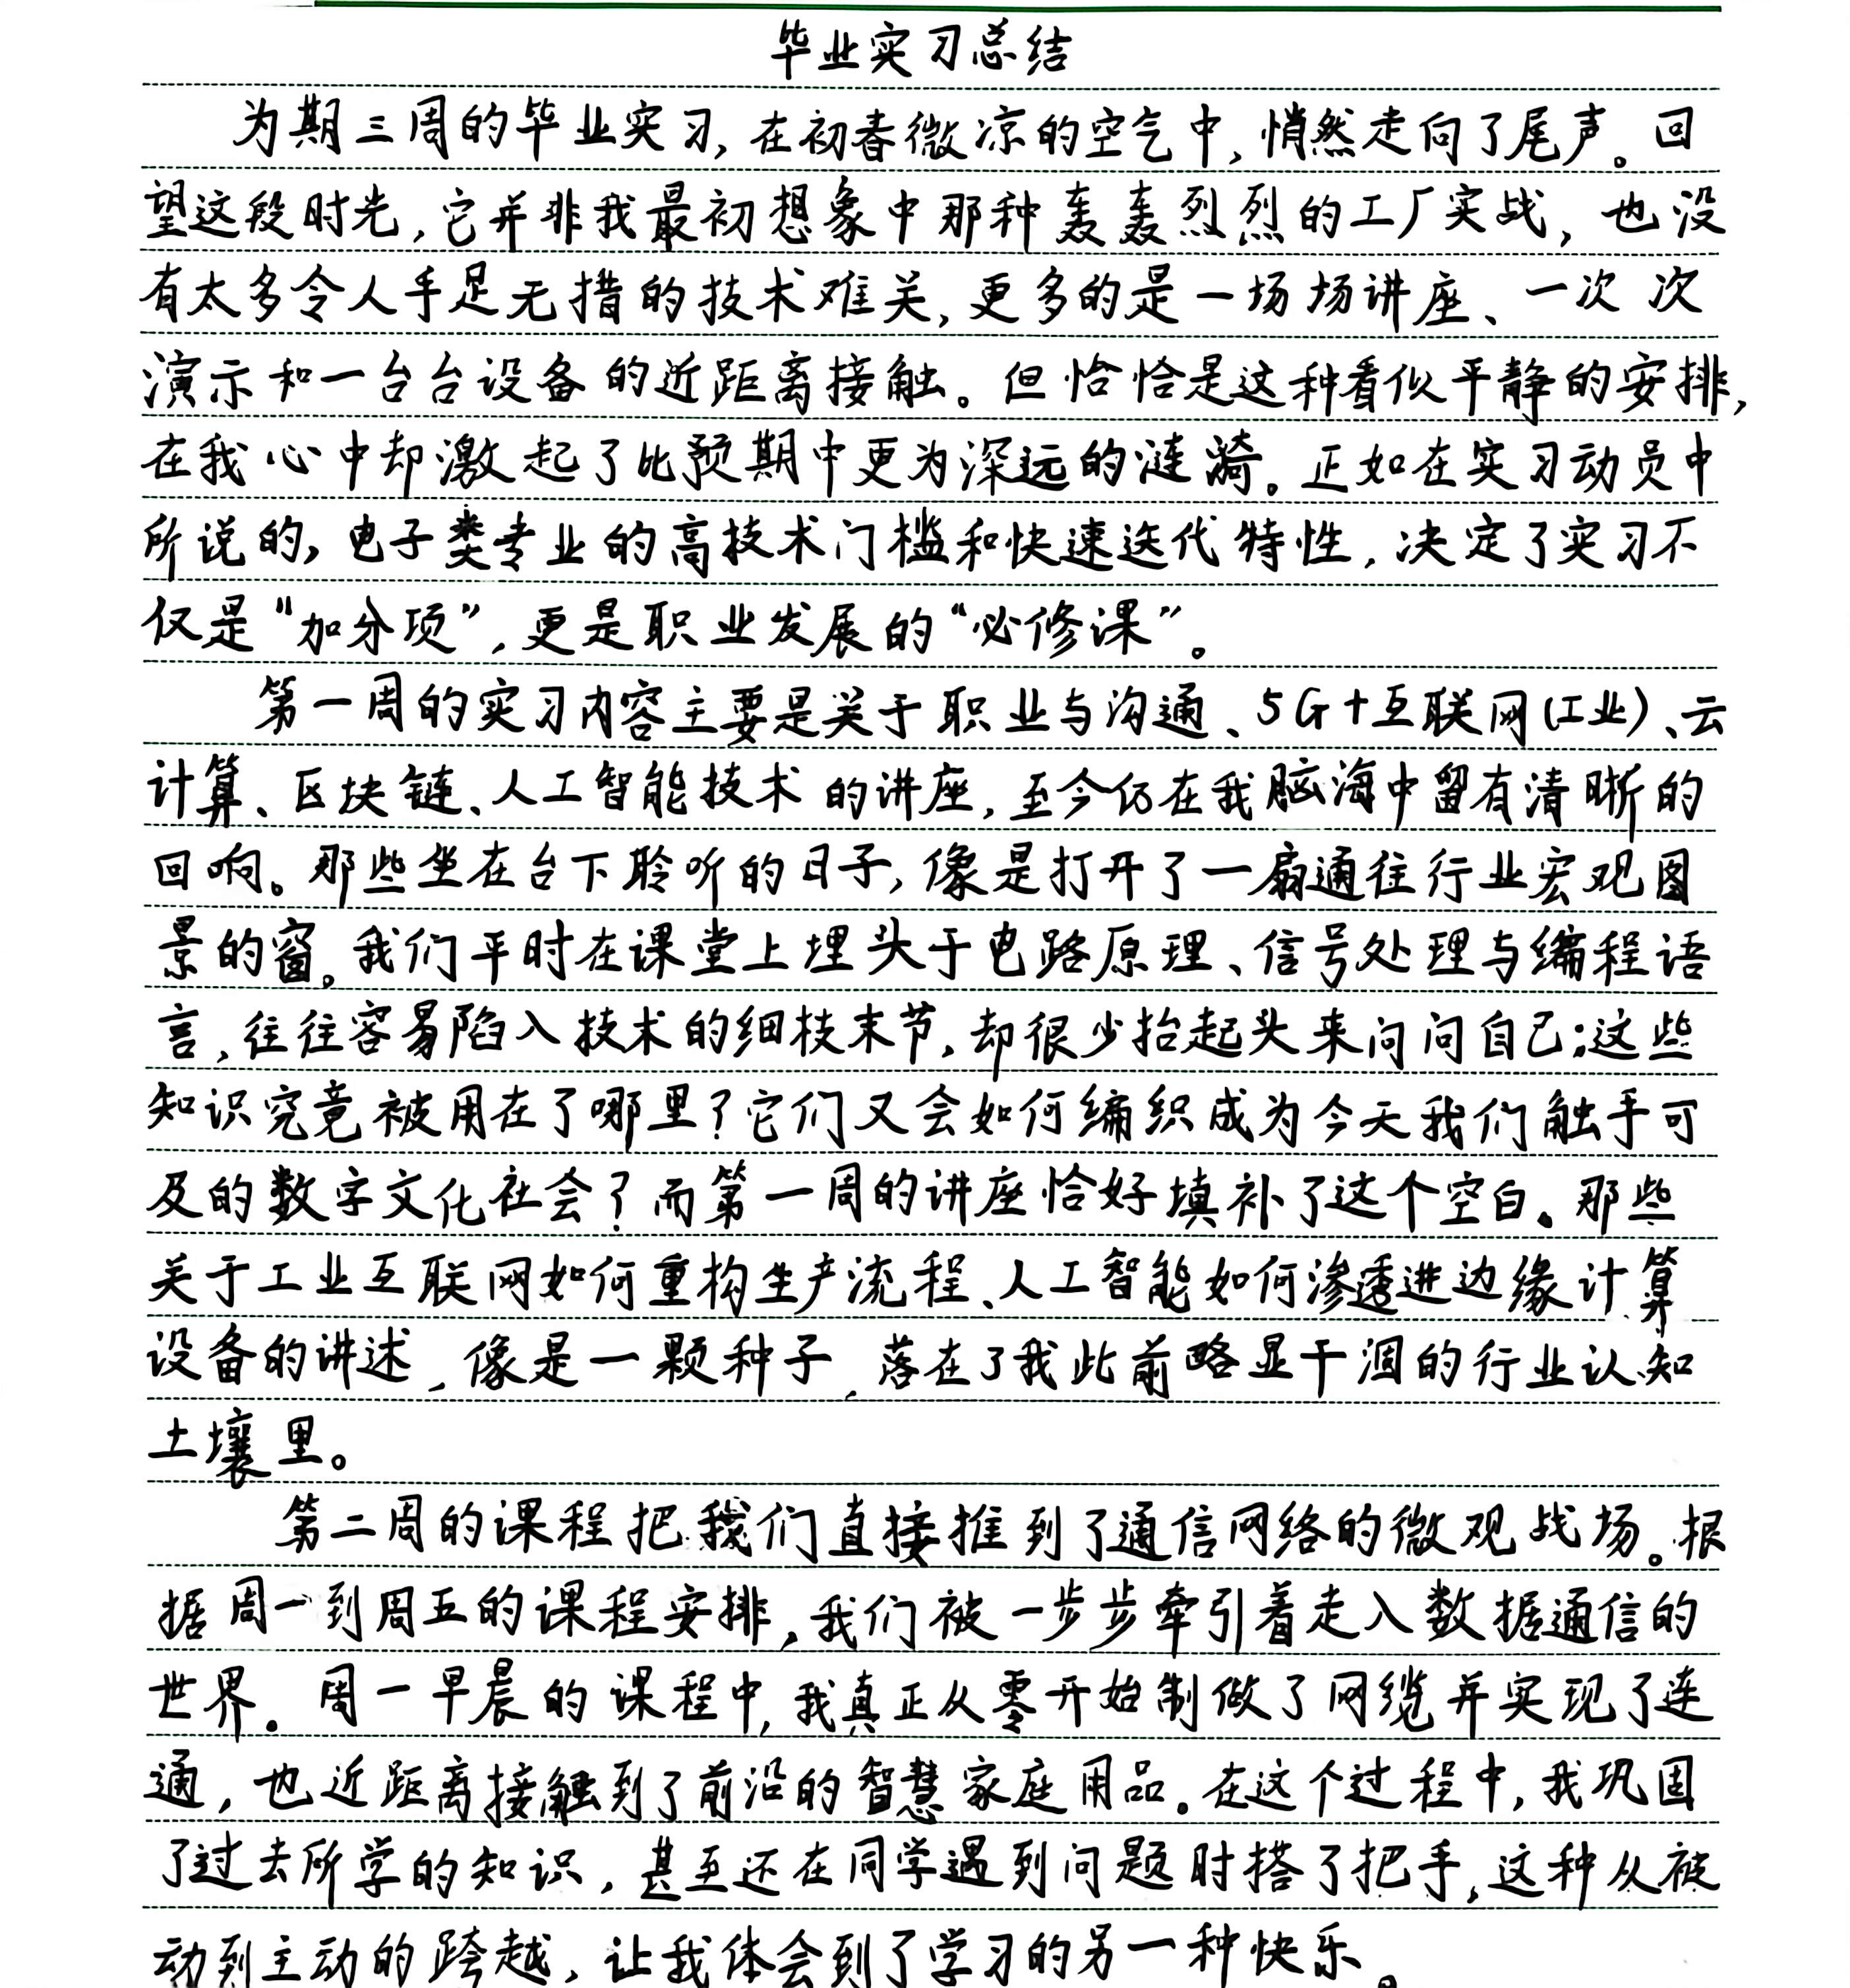 毕业实习总结
为期三周的毕业实习,在初春微凉的空气中,悄然走向了尾声。回
望这段时光,它并非我最初想象中那种轰轰烈烈的工厂实战,也没
有太多令人手足无措的技术难关,更多的是一场场讲座、一次次
演示和一台台设备的近距离接触。但恰恰是这种看似平静的安排,
在我心中却激起了比预期中更为深远的涟漪。正如在实习动员中
所说的,电子类专业的高技术门槛和快速迭代特性,决定了实习不
仅是“加分项”,更是职业发展的“必修课”。
第一周的实习内容主要是关于职业与沟通、5G+互联网(工业)、云
计算、区块链、人工智能技术的讲座,至今仍在我脑海中留有清晰的
回响。那些坐在台下聆听的日子,像是打开了一扇通往行业宏观图
景的窗。我们平时在课堂上埋头于电路原理、信号处理与编程语
言,往往容易陷入技术的细枝末节,却很少抬起头来问问自己:这些
知识究竟被用在了哪里?它们又会如何编织成为今天我们触手可
及的数字文化社会?而第一周的讲座恰好填补了这个空白。那些
关于工业互联网如何重构生产流程、人工智能如何渗透进边缘计算
设备的讲述,像是一颗种子,落在了我此前略显干涸的行业认知
土壤里。
第二周的课程把我们直接推到了通信网络的微观战场。根
据周一到周五的课程安排,我们被一步步牵引着走入数据通信的
世界。周一早晨的课程中,我真正从零开始制做了网缆并实现了连
通,也近距离接触到了前沿的智慧家庭用品。在这个过程中,我巩固
了过去所学的知识,甚至还在同学遇到问题时搭了把手,这种从被
动到主动的跨越,让我体会到了学习的另一种快乐。